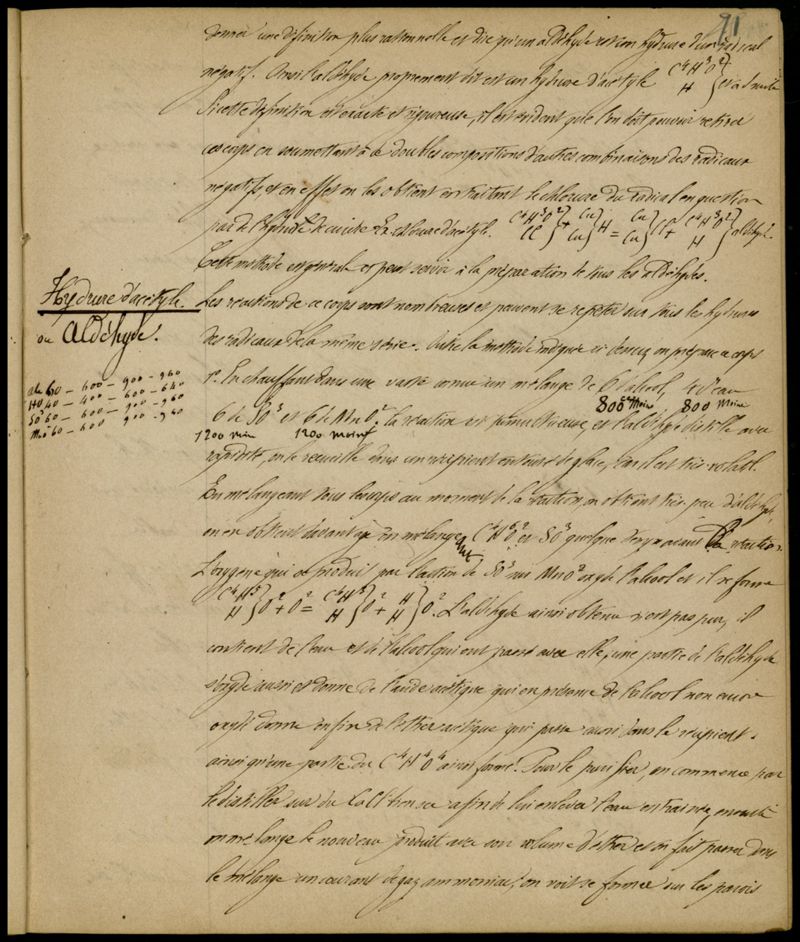 91
donner une définition plus rationnelle et dire qu'un aldéhyde est un hydrure d'un radical
négatif. Ainsi l'aldéhyde proprement dit est un hydrure d'acétyle C⁴H³O² } H
Si cette définition est exacte et rigoureuse, il est évident que l'on doit pouvoir retirer
ces corps en soumettant à de doubles compositions d'autres combinaisons des radicaux
négatifs, et en effet on les obtient en traitant le chlorure du radical en question
par de l'hydrure de cuivre le chlorure d'acétyle. C⁴H³O² } Cl + Cu } Cu } H = Cu } Cu } Cl + C⁴H³O² } H } aldéhyde
Cette méthode est générale et peut servir à la préparation de tous les aldéhydes.
Hydrure d'acétyle.
ou Aldéhyde.
Les réactions de ce corps sont nombreuses et peuvent se répéter sur tous les hydrures
des radicaux de la même série. Outre la méthode indiquée ci dessus on prépare ce corps
alc 60 – 600 – 900 – 960
HO 40 – 400 – 600 – 640
SO³ 60 – 600 – 900 – 960
Mno² 60 – 600 900 – 960
1º. En chauffant dans une vaste cornue un mélange de 6 d'alcool, 4 d'eau
800 800 moin
6 de SO³ et 6 de MnO². la réaction est tumultueuse, et l'aldéhyde distille avec
1200 moin 1200 moins
rapidité, on le recueille dans un récipient entouré de glace, car il est très volatil.
En mélangeant tous les corps au moment de la réaction, on obtient très peu d'aldéhyde,
on en obtient davantage en mélangeant C⁴H⁶O² et SO³ quelque temps avant la réaction.
L'oxygène qui se produit par l'action de SO³ sur MnO² oxyde l'alcool et il se forme
C⁴H⁵ } H } O² + O² = C⁴H³ } H } O² + H } H } O². L'aldéhyde ainsi obtenu n'est pas pur, il
contient de l'eau et de l'alcool qui ont passé avec elle, une partie de l'aldéhyde
s'oxyde aussi et donne de l'acide acétique qui en présence de l'alcool non encore
oxydé donne enfin de l'éther acétique qui passe aussi dans le récipient.
ainsi qu'une partie du C⁴H⁴O⁴ ainsi formé. Pour le purifier, on commence par
le distiller sur du CaCl bien sec afin de lui enlever l'eau entrainée, ensuite
on mélange le nouveau produit avec son volume d'éther et on fait passer dans
le mélange un courant de gaz ammoniac, on voit se former sur les parois